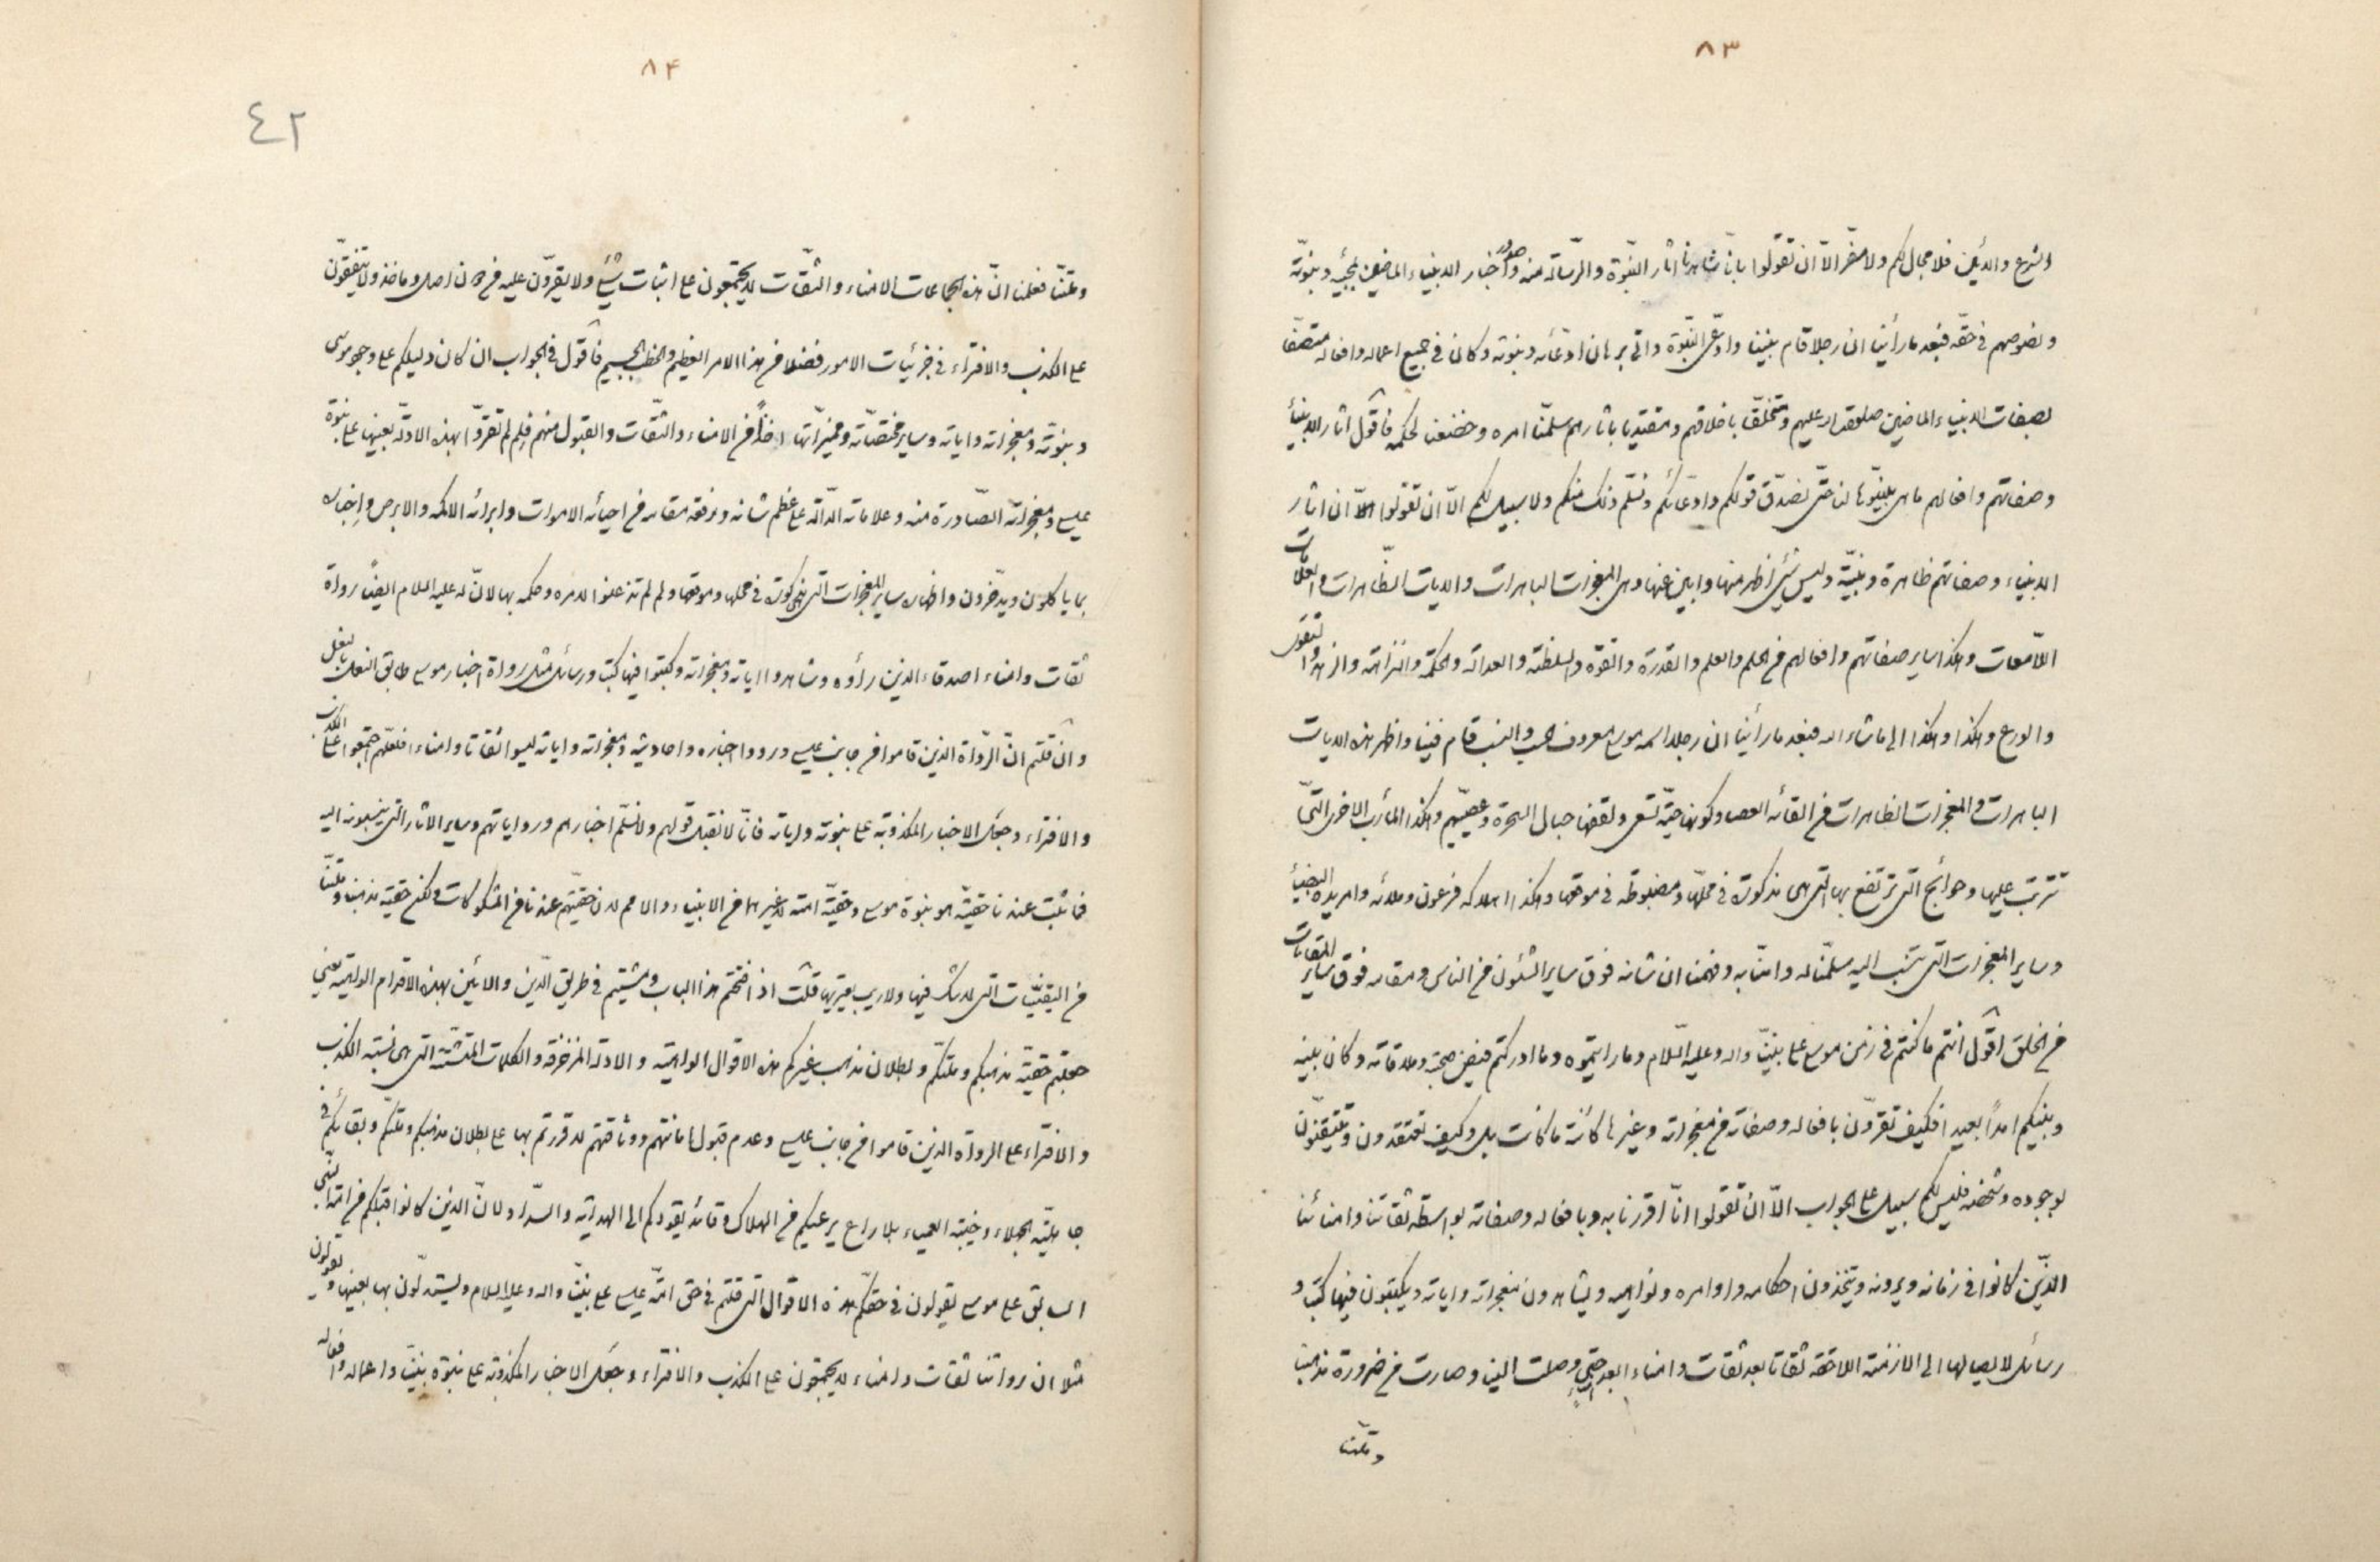 ٨٣
الشرع والدين فلا مجال لكم ولا مفرّ الّا ان تقولوا بانّا شاهدنا اثار النبّوة والرّسالة منه وصدور اخبار الانبياء الماضين بمجيئه وبنبوّته
ونصوصهم فى حقّه فبعد ما رأينا ان رجلا قام بيننا وادّعى النبّوة واتى برهان ادّعائه ونبوته وكان فى جميع اعماله وافعاله متّصفا
بصفات الانبياء الماضين صلوات الله عليهم ومتخلّقا باخلاقهم ومقتديا باثارهم سلّمنا امره وخضعنا لحكمه فاقول اثار الانبياء
وصفاتهم وافعالهم ما هى بيّنوها لنا حتّى نصدّق قولكم وادّعائكم ونسلّم ذلك منكم ولا سبيل لكم الّا ان تقولوا ان اثار
الانبياء وصفاتهم ظاهرة وبيّنة وليس شئ اظهر منها وابين عنها وهى المعجزات الباهرات والايات الظّاهرات والعلامات
اللّامعات وهكذا ساير صفاتهم وافعالهم من الحلم والعلم والقدرة والقوّة والسلطنة والعدالة والحكمة والنزاهة والزهد والتقوى
والورع وهكذا وهكذا الى ما شاء الله فبعد ما رأينا ان رجلا اسمه موسى معروف الحسب والنسب قام فينا واظهر هذه الايات
الباهرات والمعجزات الظاهرات من القائه العصا وكونها حيّة تسعى ولقفها حبال السحرة وعصيّهم وهكذا المأرب الاخرى الّتى
تترتّب عليها وحوائج التى ترتفع بها التى هى مذكورة فى محلّها ومضبوطة فى موقعها وهكذا اهلاكه فرعون وملائه وامر يده البيضاء
وساير المعجزات التى تنسب اليه سلّمنا له وامنّا به وفهمنا ان شانه فوق ساير الشئون من الناس ومقامه فوق ساير المقامات
من الخلق اقول انتم ما كنتم فى زمن موسى على نبيّنا واله وعليه السّلام وما رايتموه وما ادركتم فيض صحبته وملاقاته وكان بينه
وبينكم امداً بعيدا فكيف تقرّون بافعاله وصفاته من معجزاته وغيرها كائنة ما كانت بل وكيف تعتقدون وتتيقّنون
بوجوده وشخصه فليس لكم سبيل على الجواب الّا ان تقولوا انّا اقررنا به وبافعاله وصفاته بواسطة ثقاتنا وامنائنا
الذّين كانوا فى زمانه ويرونه ويتخذون احكامه واوامره ونواهيه ويشاهدون معجزاته واياته ويكتبون فيها كتب و
رسائل لايصالها الى الازمنة اللاحقة ثقاتا بعد ثقات وامناء ابعد حتى وصلت الينا وصارت من ضرورة مذهبنا
وملّتنا
٨٤
٤٢
وملّتنا فعلمنا انّ هذه الجماعات الامناء والثّقات لا يجتمعون على اثبات شئ ولا يقرّون عليه من دون اصل وماخذ ولا يتّفقون
على الكذب والافتراء فى جزئيات الامور فضلا من هذا الامر العظيم والخطب الجسيم فاقول فى الجواب ان كان دليلكم على وجود موسى
ونبوّته ومعجزاته واياته وساير مختصّاته ومميزّاتها اخذاً من الامناء والثّقات والقبول منهم فلِم لم تقرّوا بهذه الادلّة بعينها على نبّوة
عيسى ومعجزاته الصّادرة منه وعلاماته الدّالّة على عظم شانه ورفعة مقامه من احيائه الاموات وابرائه الاكمه والابرص واخباره
بما ياكلون ويدّخرون واظهاره ساير المعجزات التى هى مذكورة فى محلها وموقعها ولم لم تذعنوا لامره وحكمه بها لانّ له عليه السلام ايضاً رواة
ثقات وامناء اصدقاء الذين رأوه وشاهدوا اياته ومعجزاته وكتبوا فيها كتب ورسائل مثل رواة اخبار موسى طابق النعل بالنعل
وان قلتم انّ الرّواة الذين قاموا من جانب عيسى ورووا اخباره واحاديثه ومعجزاته واياته ليسوا ثقاتا وامناء فلعلّهم اجتمعوا على الكذب
والافتراء وجعل الاخبار المكذوبة على نبوته واياته فانّا لا نقبل قولهم ولا نسلّم اخبارهم ورواياتهم وساير الاثار التى ينسبونه اليه
فما ثبت عندنا حقيّة هو نبوة موسى وحقيّة امته لا غيرها من الانبياء والامم لان حقيّتهم عندنا من المشكوكات ولكن حقيّة مذهبنا وملّتنا
من اليقينيّات التى لا شك فيها ولا ريب يعتريها قلت اذا فتحتم هذا الباب ومشيتم فى طريق الدّين والائين بهذه الاقدام الواهية يعنى
جعلتم حقيّة مذهبكم وملّتكم وبطلان مذهب غيركم هذه الاقوال الواهية والادلة المزخرفة والكلمات المتشتّتة التى هى نسبة الكذب
والافتراء على الرواة الذين قاموا من جانب عيسى وعدم قبول امانتهم ووثاقتهم لاقررتم بها على بطلان مذهبكم وملّتكم وبقائكم فى
جاهليّة الجهلاء وخيبة العمياء بلا راع يرعيكم من الهلاك وقائد يقودكم الى الهداية والسّداد لانّ الذين كانوا قبلكم من امّة النّبى
السابق على موسى يقولون فى حقكّم هذه الاقوال التى قلتم فى حق امّة عيسى على نبيّنا واله وعليه السلام ويستدلّون بها بعينها ويقولون
مثلا ان رواتنا ثقات وامناء لا يجتمعون على الكذب والافتراء وجعل الاخبار المكذوبة على نبوّة نبيّنا واعماله وافعاله